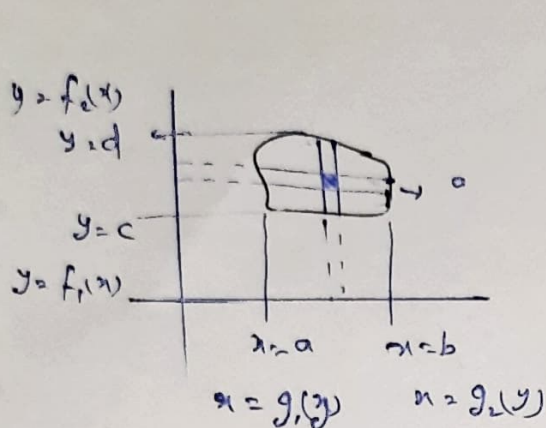 y = f₂(x)
y = d
y = c
y = f₁(x)
x = a x = b
x = g₁(y) x = g₂(y)